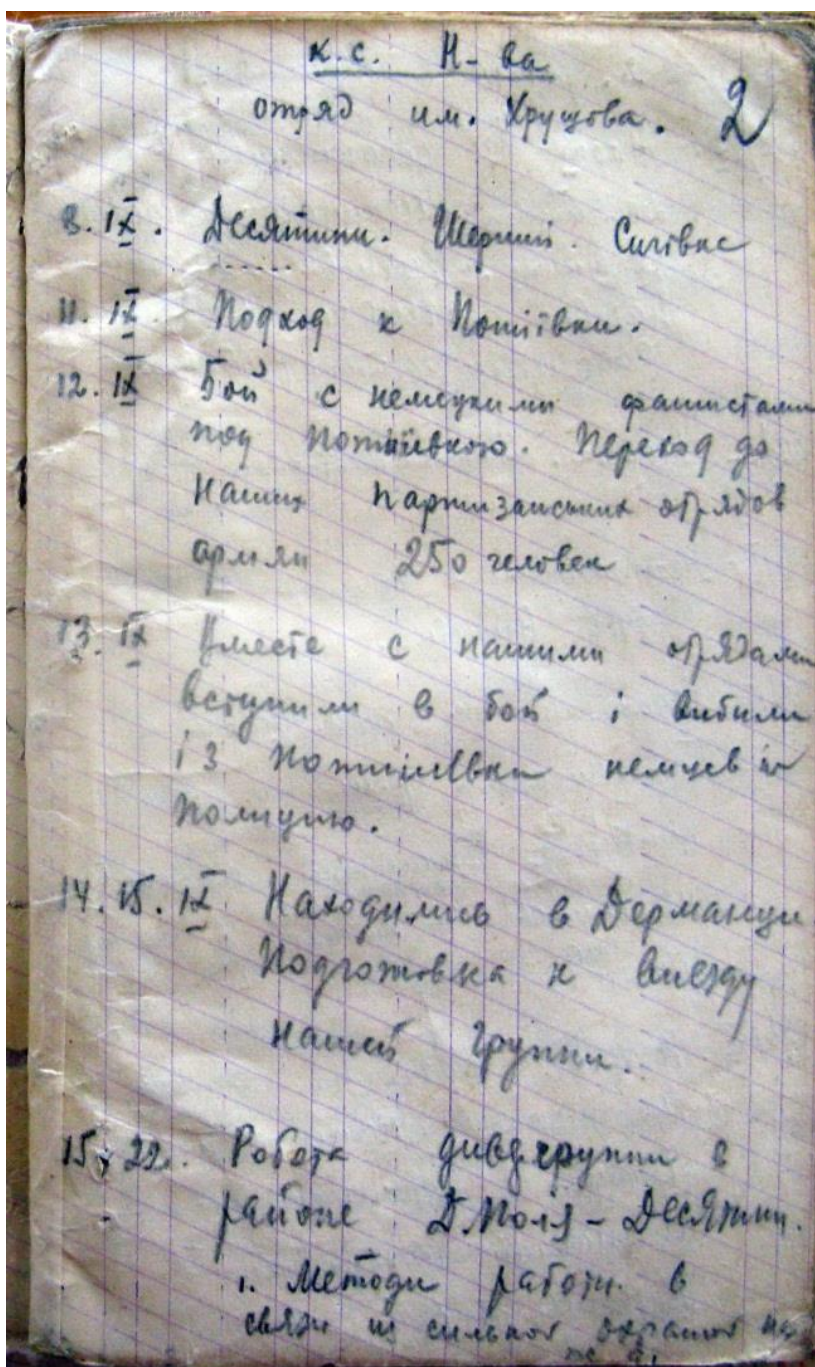 к.с. Н-ва
отряд им. Хрущова. 2
8.IX. Десятини. Шершні. Сичівка
11.IX Подход к Потіївки.
12.IX Бой с немецкими фашистами
под Потіївкою. Переход до
Наших партизанських отрядов
армян 250 человек
13.IX Вместе с нашими отрядами
вступили в бой і вибили
із немцев и
Полицию.
14.15.IX Находились в Дерманци
Подготовка к виезду
нашей группи.
15, 22. Робота дивгруппи в
районе Десятини.
1. Методи работи в
связи из сильной охраной